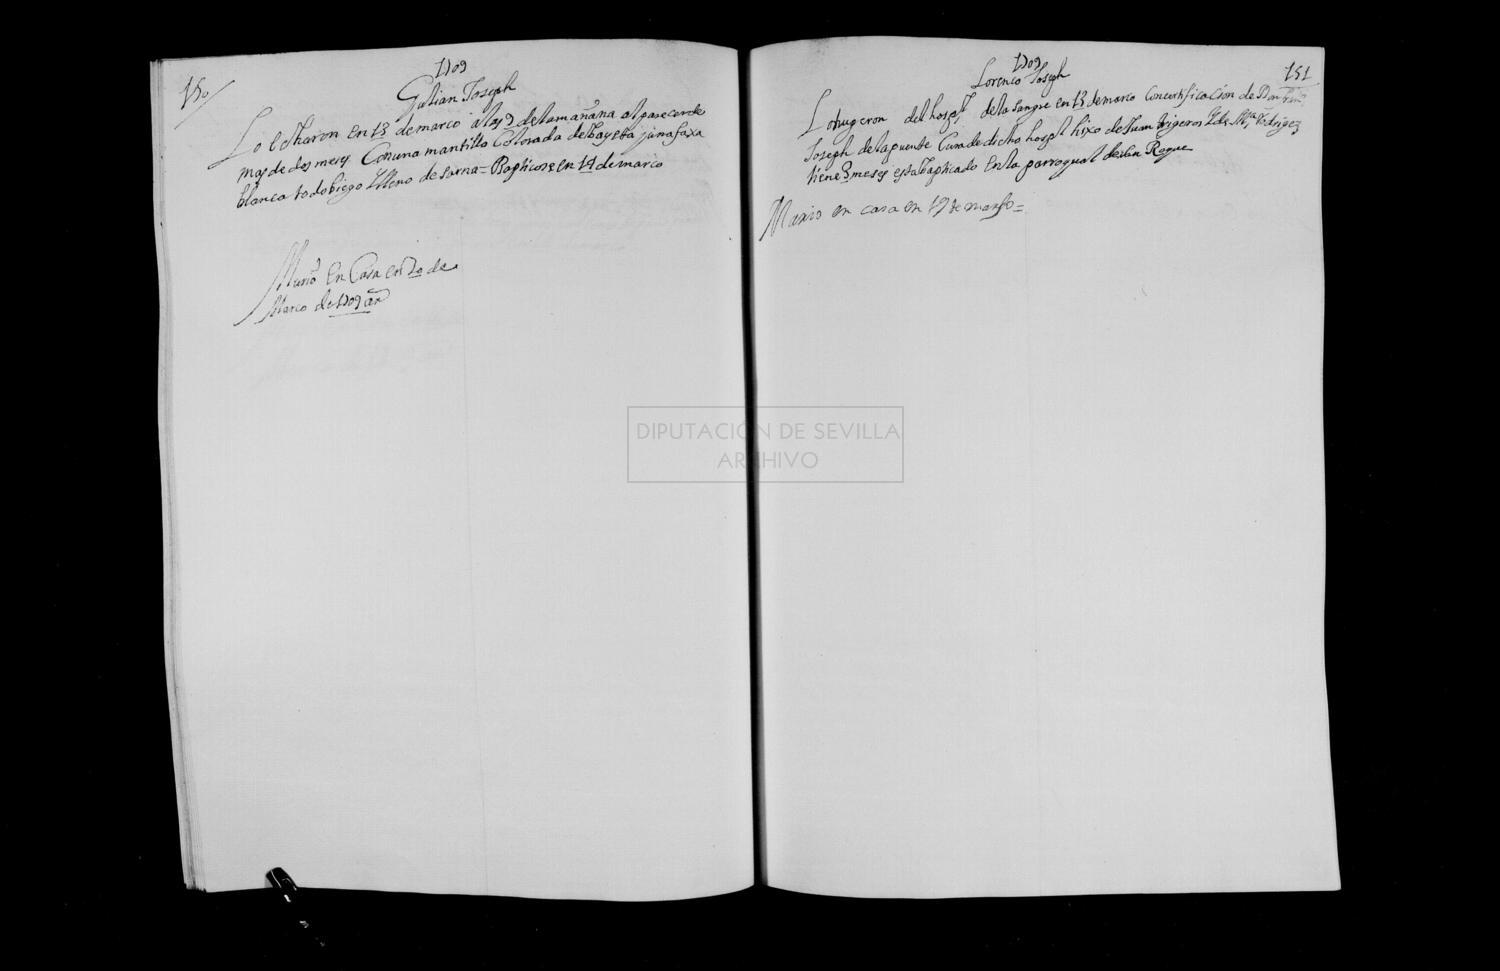 150
1709
Gulian Joseph
Lo Echaron en 13 de marco a las 9 de la mañana al parecer de
mas de dos meses Con una mantilla Colorada de bayeta y una faxa
blanca todo biego lleno de sarna = Baptiçose en 14 de marco
Murio En Casa en 20 de
Marco de 1709 añ
1709
151
Lorenco Joseph
Lo trugeron del hospl de la Sangre en 13 de marco Con certificacion de Don
Joseph de la puente Cura de dicho hospl hixo de Juan trigeros I de Ma Rodrigez
tiene 3 meses esta baptiçado En la parroquial de san Roque
Murio en casa en 19 de marso =
DIPUTACION DE SEVILLA
ARCHIVO